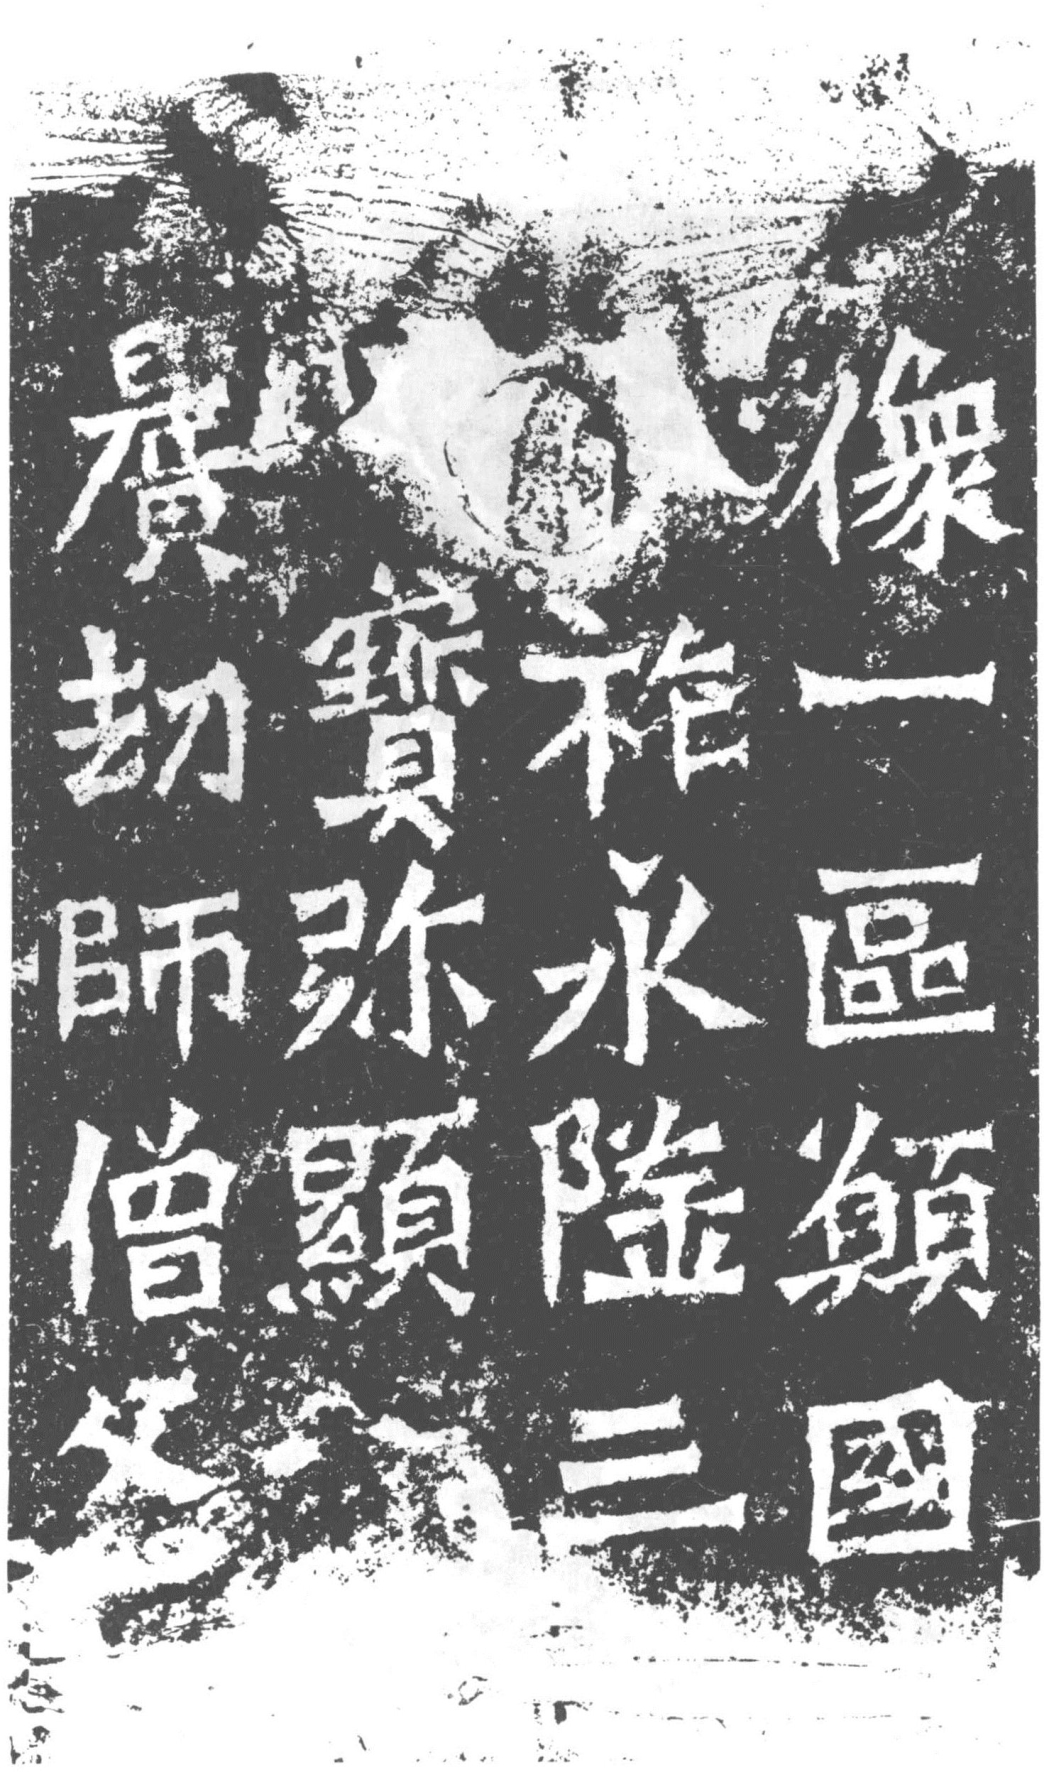 像一區願國
祚永隆三
寶弥顯
曠劫師僧父